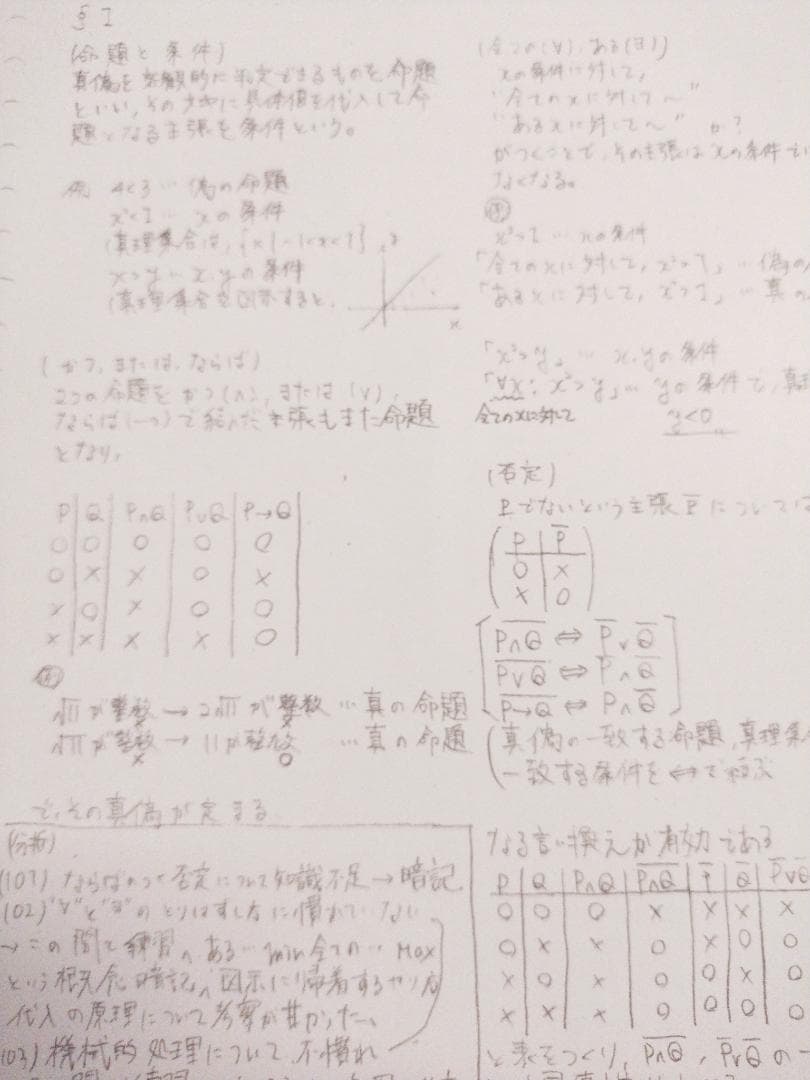 §I
(命題と条件)
真偽を客観的に判定できるものを命題
といい、その文字に具体値を代入して命
題となる主張を条件という。
例 4<3 … 偽の命題
x²<1 … xの条件
(真理集合は、{x|-1<x<1}
x>y … x,yの条件
(真理集合を図示すると、
x
(かつ, または, ならば)
2つの命題をかつ(∧), または(∨),
ならば(→)で結んだ主張もまた命題
となり,
P Q P∧Q P∨Q P→Q
○ ○ ○ ○ ○
○ × × ○ ×
× ○ × ○ ○
× × × × ○
√11が整数 → 2√11が整数 … 真の命題
× ×
√11が整数 → 11が整数 … 真の命題
× ○
で、その真偽が定まる
(分析)
(101) ならばの 否定について知識不足 → 暗記
(102) "∀"と"∃"のとりはずし方に慣れていない
→この問で練習、ある…min 全ての…Max
という概念暗記、図示に帰着するやり方
代入の原理について考察が甘かった、
(103) 機械的処理について不慣れ
(全ての(∀), ある(∃))
xの条件に対して,
"全てのxに対して〜"
"あるxに対して〜" か?
がつくことで、その主張はxの条件で
なくなる。
例
x²>1 … xの条件
「全てのxに対して, x²>1」 … 偽の
「あるxに対して, x²>1」 … 真の
「x²>y」 … x,yの条件
「∀x: x²>y」 … yの条件で,真
全てのxに対して y<0
(否定)
PでないというP̅については
P P̅
○ ×
× ○
‾P∧Q‾ ⇔ P̅∨Q̅
‾P∨Q‾ ⇔ P̅∧Q̅
‾P→Q‾ ⇔ P∧Q̅
(真偽の一致する命題,真理集
一致する条件を⇔で結ぶ
なる言い換えが有効である
P Q P∧Q ‾P∧Q‾ P̅ Q̅ P̅∨Q̅
○ ○ ○ × × × ×
○ × × ○ × ○ ○
× ○ × ○ ○ × ○
× × × ○ ○ ○ ○
と表をつくり, ‾P∧Q‾, P̅∨Q̅ の一